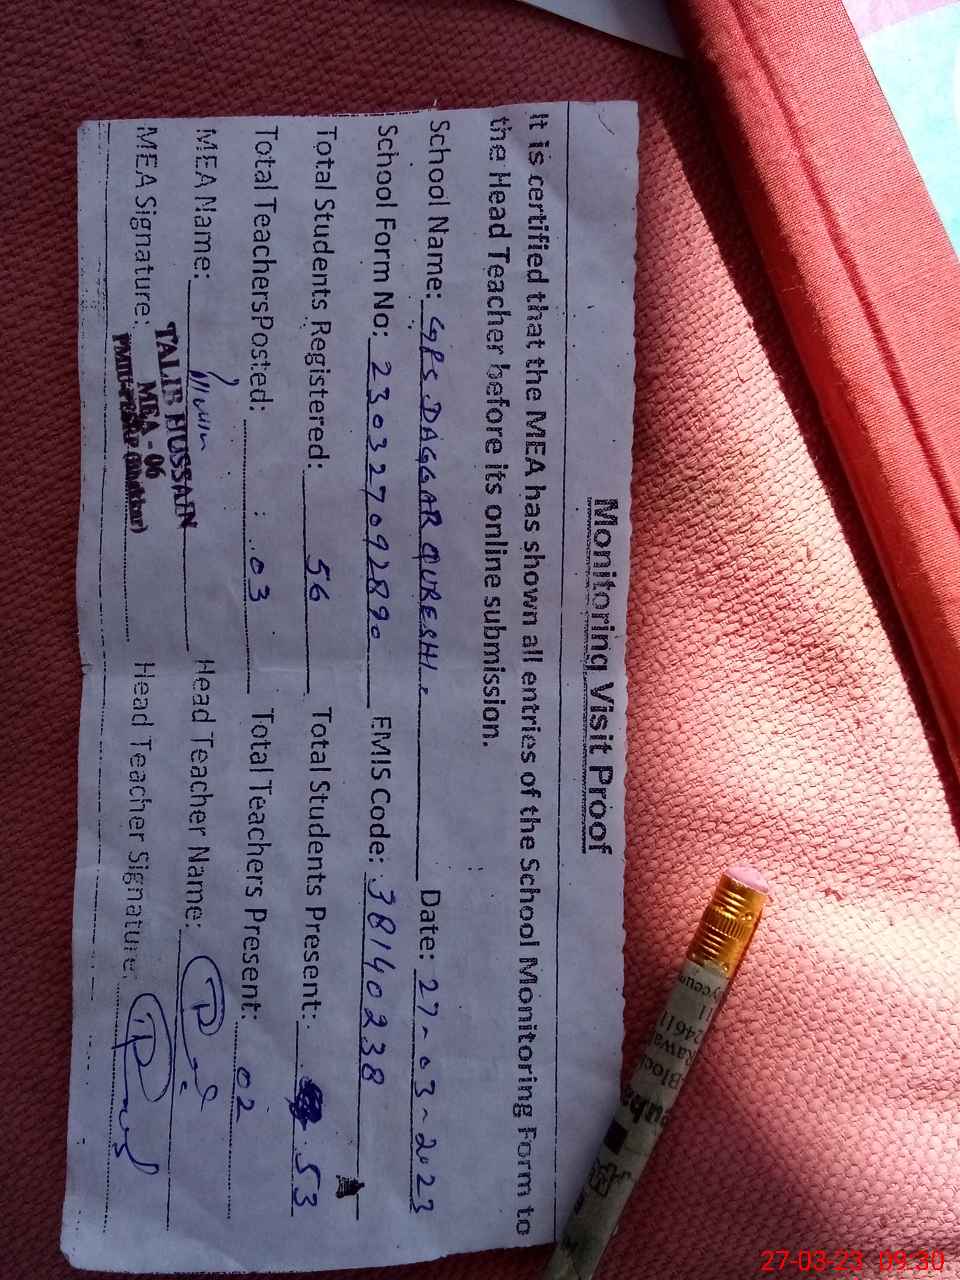 Monitoring Visit Proof
It is certified that the MEA has shown all entries of the School Monitoring Form to
the Head Teacher before its online submission.
School Name: GPS DAGGAR QURESHI. Date: 27-03-2023
School Form No: 230327092890 EMIS Code: 38140238
Total Students Registered: 56 Total Students Present: 53
Total TeachersPosted: 03 Total Teachers Present: 02
MEA Name: Head Teacher Name:
MEA Signature: Head Teacher Signature:
TALIB HUSSAIN
MEA - 06
27-03-23 09:30